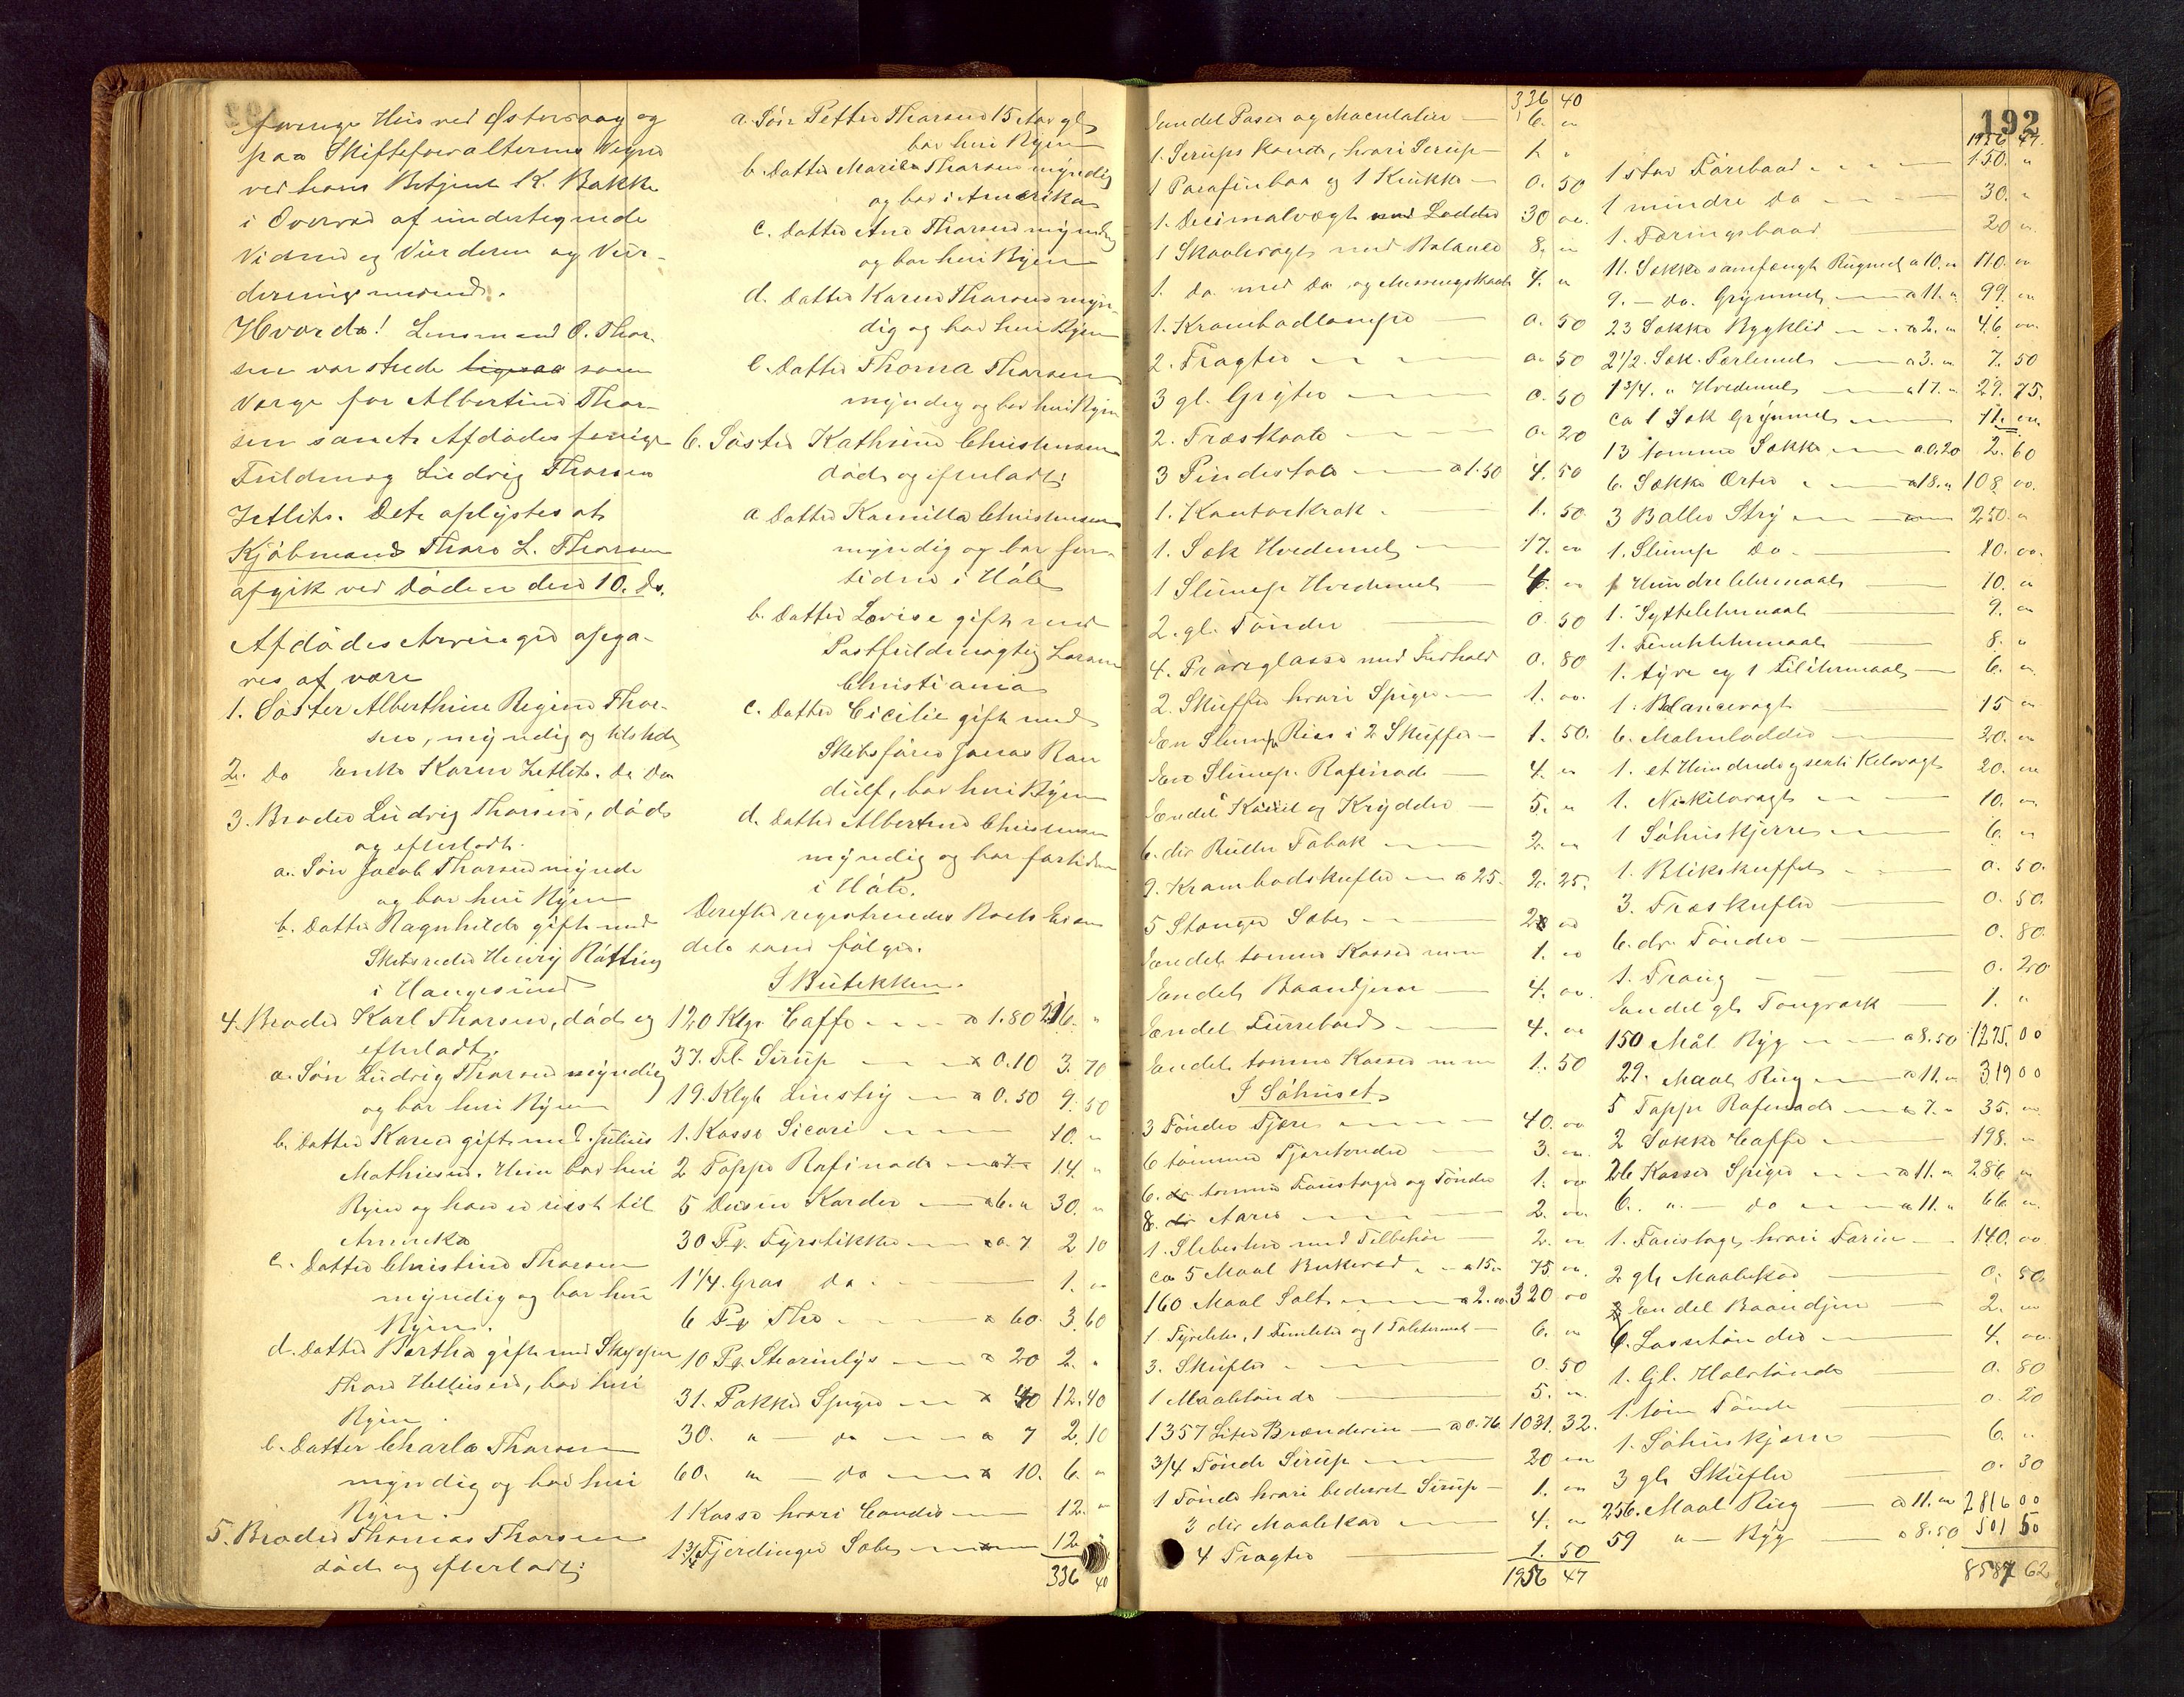 forrige Hus ved Østervaag og
paa Skifteforvalterens Vegne
ved hans Betjent K. Bakke
i Overvær af undertegnede
Vidner og Vurderer og Vur-
deringsmænd.
Hvorda! Lensmand O. Thor-
sen var stede ligesaa som
Værge for Albertine Thor-
sen samt Afdødes forrige
Fuldmæg Ludvig Thorsen
Zetlitz. Det oplystes at
Kjøbmand Thore L. Thorsen
afgik ved Døden den 10. ds.
Afdødes Arvinger opga-
ves at være
1. Søster Alberthine Regine Thor-
sen, myndig og tilstede
2. Do Enke Karen Zetlitz. Do Do
3. Broder Ludvig Thorsen, død
og efterladt.
a. Søn Jacob Thorsen mynde
og bor her i Byen
b. Datter Ragnhilde gift med
Skibsreder Henrij Røtting
i Haugesund
4. Broder Karl Thorsen, død og
efterladt.
a. Søn Ludvig Thorsen myndig
og bor her i Byen
b. Datter Karen gift med Julius
Mathiesen. Hun bor her i
Byen og han er reist til
Amerika
c. Datter Christine Thorsen
myndig og bor her i
Byen.
d. Datter Bertha gift med Skipper
Thore Helliesen, bor her i
Byen.
e. Datter Charla Thorsen
myndig og bor her i
Byen.
5. Broder Thomas Thorsen
død og efterladt:
a. Søn Petter Thorsen 15 Aar gl
bor her i Byen
b. Datter Marile Thorsen myndig
og bor i Amerika
c. Datter Ane Thorsen myndig
og bor her i Byen
d. Datter Karen Thorsen myn-
dig og bor her i Byen
e. Datter Thoma Thorsen
myndig og bor her i Byen
6. Søster Kathrine Christensen
død og efterladt:
a. Datter Kamilla Christensen
myndig og bor for-
tiden i Hole
b. Datter Lovise gift med
Postfuldmægtig Larsen
Christiania
c. Datter Cicilie gift med
Skibsfører Jonas Ran
dulf, bor her i Byen
d. Datter Albertine Christensen
myndig og bor fortiden
i Hole.
Derefter registreredes Boets Eien
dele som følger.
I Butikken.
120 Klgr. Caffe a 1.80 216. "
37. Fl. Sirup a 0.10 3.70
19. Klgr Linstrig a 0.50 9.50
1. Kasse Sicori 10. "
2 Toppe Rafinade a 7 14. "
5 Dusin Karder a 6. " 30. "
30 Pg. Fyrstikke a 7 2 10
1 1/4. Gros Do. 1. "
6 Pg The a 60. 3.60
10 Pg Stearinlys a 20 2. "
31. Pakke Spiger a 40 12.40
30. " do a 7 2.10
60. " do a 10. 6. "
1 Kasse hvori Candis 12. "
1 3/4 Fjerdinger Sæbe 12
336 40
336 40
Endel Poser og Maculatur 6. "
1. Serups Kande, hvori Serup 1. "
1 Parafinkan og 1 Krukke 0. 50
1. Desimalvægt med Lodder 30 oo.
1 Skaalevægt med Balance 8. "
1. Do med Do og Messingskaale 4. "
1. Krambodlampe 0. 50
2. Tragter 0. 50
3 gl. Gryter 0. 50
2. Træskaale 0. 20
3 Pindestole a 1.50 4. 50
1. Kontorkrak. 1. 50
1. Sæk Hvedemel 17. oo
1 Slump Hvedemel 4. oo
2. gl. Tønder 0. 50
4. Prøveglasse med Indhold 0. 80
2. Skuffer hvori Spiger 1. oo.
En Slump Riis i 2 Skuffer 1. 50.
En Slump. Rafinade 4. "
Endel Kanel og Krydder 5. "
6. div Ruller Tobak 2. "
9. Krambodskufler a 25. 2. 25.
5 Stanger Sæbe 2 oo
Endel tomme Kasser m.m 1. oo
Endel Baandjern 4. oo.
Endel Furrebord 4. oo
Endel tomme Kasser m.m 1. 50
I Søhuset
3 Tønder Tjære 40. oo
6 tomme Tjæretønder 3. oo.
6. tomme Faustager og Tønder 1. oo
8. Aarer 2. oo.
1. Slibesten med Tilbehør 2. "
ca 5 Maal Birkeved a 15 " 75 oo.
160 Maal Salt a 2. oo. 320 oo
1. Tyveliter, 1 Femliter og 1 Toliterm. 6. oo
3. Skufler 0. 50
1 Maaletønde 5. "
1357 Liter Brændevin a 0.76 1031. 32.
3/4 Tønde Sirup 20 oo
1 Tønde hvori bedervet Sirup 1. oo
3 div Maalekar 4. oo
4 Tragter 1. 50
1956 47
192
1956 47.
1 stor Førebaad 150. "
1 mindre Do 30. "
1. Føringsbaad 20 "
11. Sække samfængt Rugmel a 10. " 110. oo
9. Do. Grynmel a 11. " 99. oo
23 Sække Bygklid a 2. " 46 oo.
2 1/2. Sæk. Perlemel a 3. " 7. 50
1 3/4. " Hvedemel a 17. " 29. 75.
ca 1 Sæk Grynmel 11. oo.
13 tomme Sække a 0.20 2. 60
6. Sække Erter a 18. " 108 oo.
3 Baller Stry 250. "
1. Slump Do. 10. oo.
1 Hundre litermaal 10. "
1. Syttelitermaal 9. oo
1. Femtilitermaal 8. "
1. tyve og 1 Tilitermaal 6. "
1. Balancevægt 15 oo
6. Malmlodder 20. oo
1. et Hundrede og seksti Kilovægt 20. oo
1. Nikilovægt 10. oo
1 Søhuskjerre 6. "
1. Blikskuffel 0. 50.
3. Træskufler 0. 50.
6. div Tønder 0. 80.
1. Traug 0. 20
Endel gl. Tougværk 1. "
150 Mål Byg a 8.50 1275. 00
29. Maal Rug a 11. " 319 00
5 Toppe Rafinade a 7. " 35. oo
2 Sække Caffe 198. "
26 Kasser Spiger a 11. " 286. oo
6. " do a 11. " 66 oo.
1. Faustage, hvori Farin 140. oo
2 gl. Maalekar 0. 50
Endel Baandjern 2. oo
6. Lossetønder 4. oo.
1. gl. Halvtønde 0. 80
1. tom Tønde 0. 20
1. Søhuskjerre 6. "
3 gl. Skufler 0. 30
256. Maal Rug a 11. oo 2816 00
59 " Byg a 8.50 501 50
8587 62